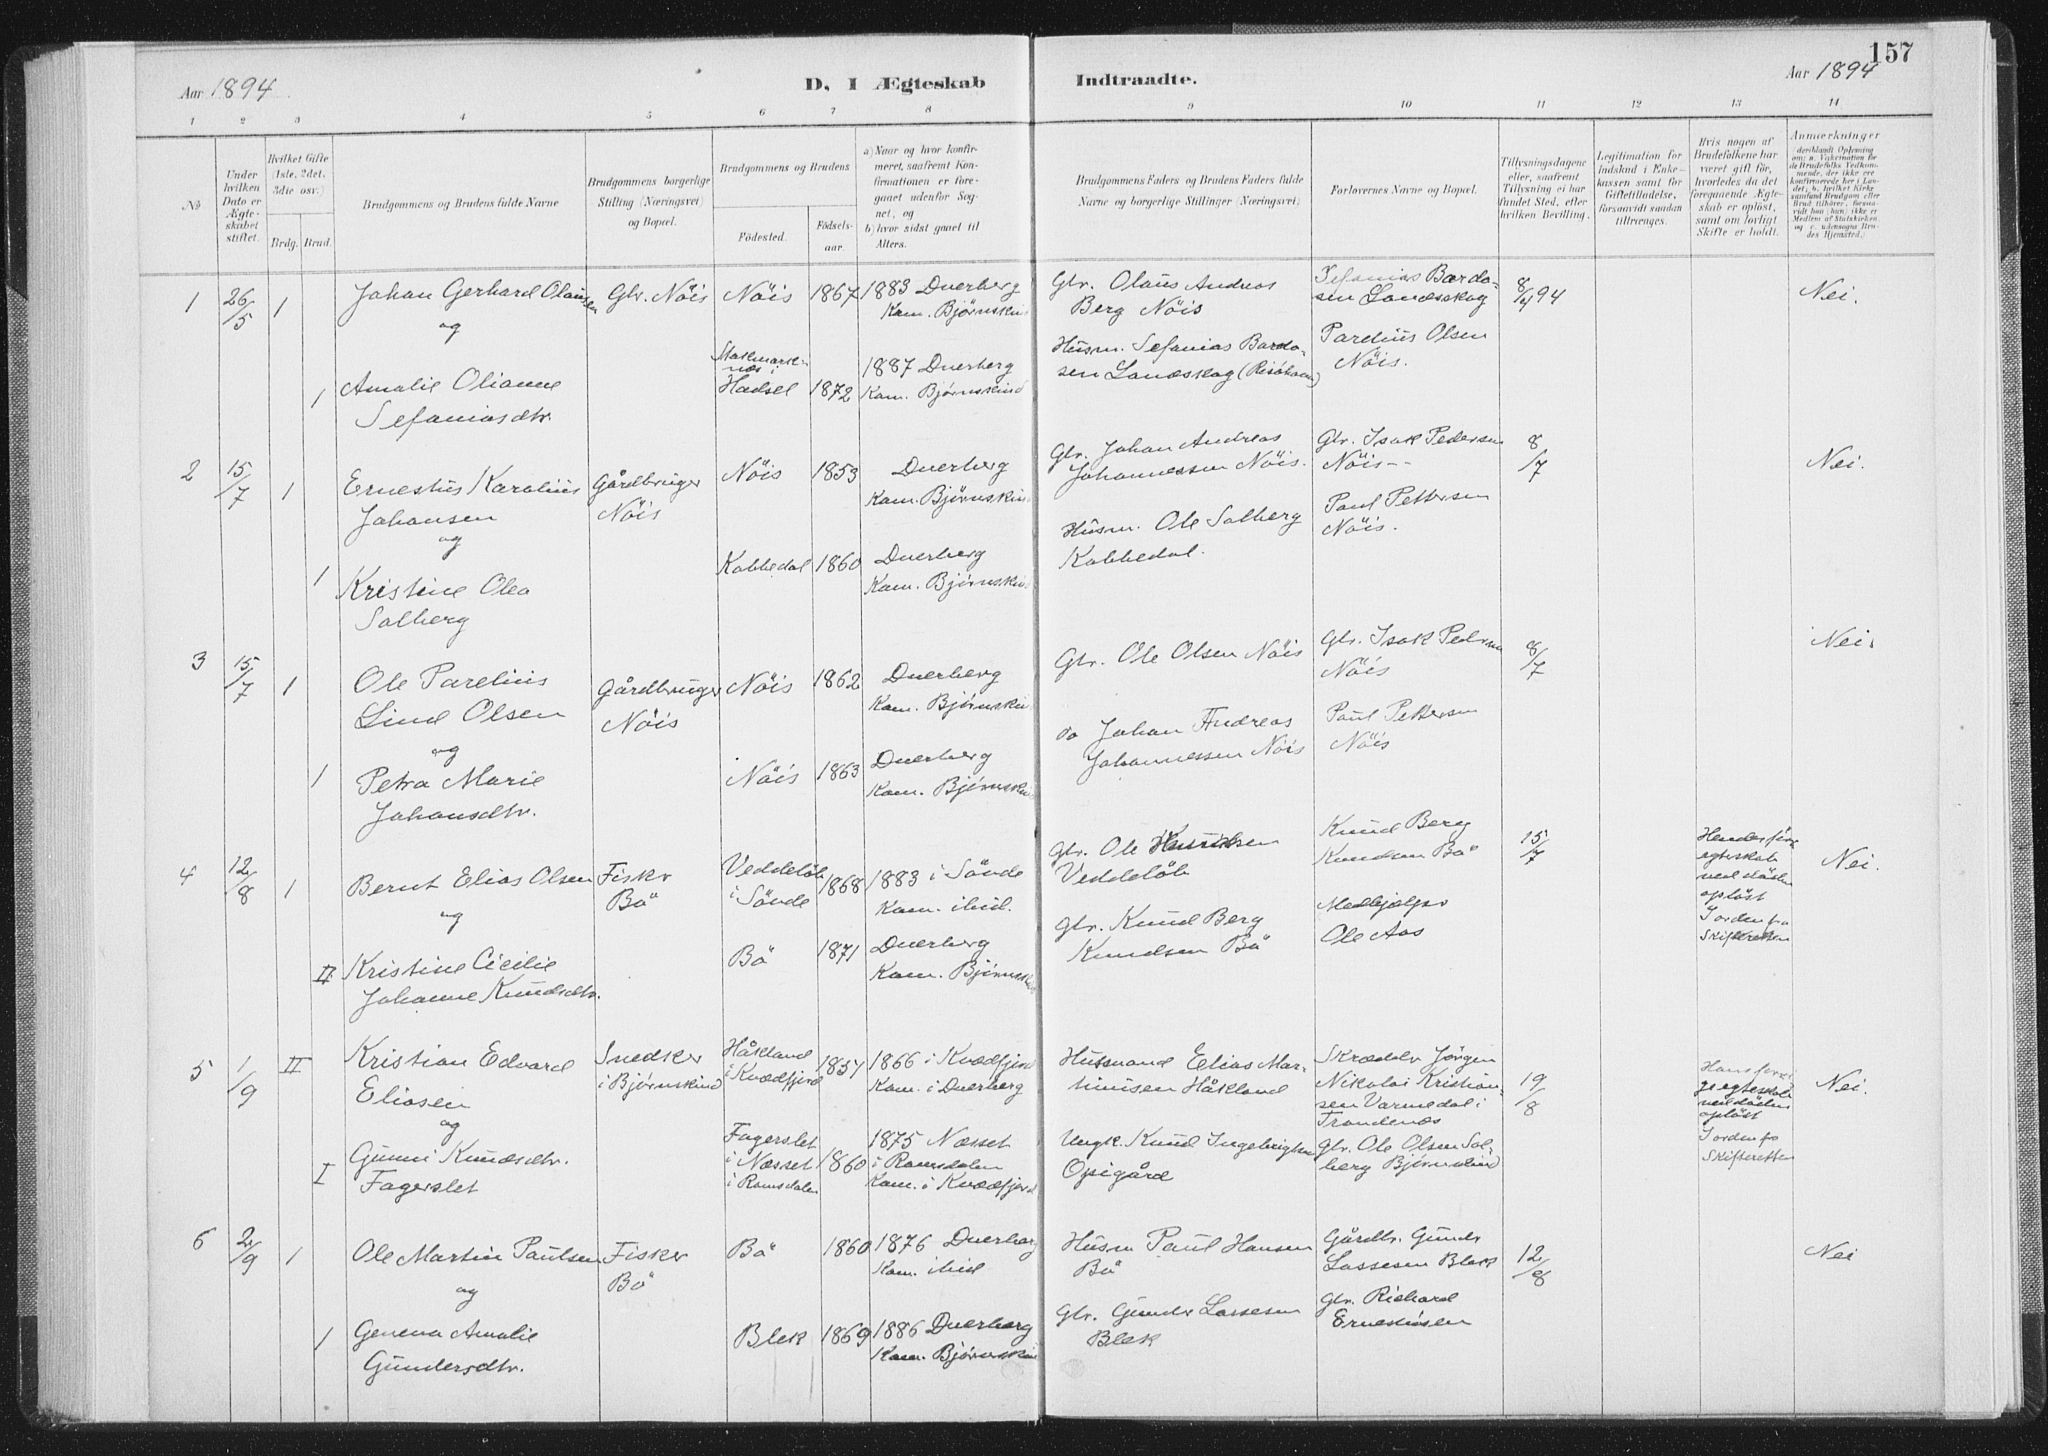 157
Aar 1894
D. I Ægteskab
Indtraadte.
Aar 1894
1 2 3 4 5 6 7 8 9 10 11 12 13 14
No
Under
hvilken
Dato er
Ægte-
skabet
stiftet.
Hvilket Gifte
(1ste, 2det,
3die osv.)
Brdg. Brud.
Brudgommens og Brudens fulde Navne
Brudgommens borgerlige
Stilling (Næringsvei)
og Bopæl.
Brudgommens og Brudens
Fødested.
Fødsels-
aar.
a) Naar og hvor konfir-
meret, saafremt Kon-
firmationen er fore-
gaaet udenfor Sog-
net, og
b) hvor sidst gaaet til
Alters.
Brudgommens Faders og Brudens Faders fulde
Navne og borgerlige Stillinger (Næringsvei)
Forlovernes Navne og Bopæl.
Tillysningsdagene
eller, saafremt
Tillysning ei har
fundet Sted, efter
hvilken Bevilling.
Legitimation for
Indskud i Enke-
kassen samt for
Giftetilladelse,
forsaavidt saadan
tiltrænges.
Hvis nogen af
Brudefolkene har
været gift før,
hvorledes da det
foregaaende Ægte-
skab er opløst,
samt om lovligt
Skifte er holdt.
Anmærkninger
1
26/5
1
Johan Gerhard Olausen
og
Gbr. Nöis
Nöis
1867
1883 Dverberg
Kom. Bjørnskin
Gbr. Olaus Andreas
Berg Nöis
Sefanias Bardo-
sen Landskog
8/4 94
Nei.
1
Amalie Olianne
Sefaniasdtr.
Hadsel
1872
1887 Dverberg
Kom. Bjørnskind
Husm. Sefanias Bardo-
sen Landskog (Risöhavn)
Parelius Olsen
Nöis.
2
15/7
1
Ernestus Karolius
Johansen
og
Gårdbruger
Nöis
Nöis
1853
Dverberg
Kom. Bjørnskin
Gbr. Johan Andreas
Johannessen Nöis.
Gbr. Isak Pedersen
Nöis--
8/7
Nei.
1
Kristine Olea
Solberg
Kobbedal
1860
Dverberg
Kom. Bjørnskind
Husm. Ole Solberg
Kobbedal.
Paul Pettersen
Nöis.
3
15/7
1
Ole Parelius
Lind Olsen
og
Gårdbruger
Nöis
Nöis
1862
Dverberg
Kom. Bjørnskin
Gbr. Ole Olsen Nöis
Gbr. Isak Pedersen
Nöis
8/7
Nei.
1
Petra Marie
Johansdtr.
Nöis
1863
Dverberg
Kom. Bjørnskin
do Johan Andreas
Johannessen Nöis
Paul Pettersen
Nöis
4
12/8
1
Bernt Elias Olsen
og
Fisker
Bö
Veddelöb
i Sönde
1868
1883 i Sönde
Kom. ibid.
Gbr. Ole Henriksen
Veddelöb
Knud Berg
Knudsen Bö
15/7
Hendes före
egteskab
ved döden
oplöst
I orden fra
Skifteretten
Nei.
II
Kristine Cecilie
Johanne Knudsdtr.
Bö
1871
Dverberg
Kom. Bjørnskind
Gbr. Knud Berg
Knudsen Bö
Medhjelper
Ole Aas
5
1/9
II
Kristian Edvard
Eliasen
og
Snedker
i Bjørnskind
Håkland
i Kvædfjord
1851
1866 i Kvædfjord
Kom. i Dverberg
Husmand Elias Mar-
tinisen Håkland
Skrædder Jörgen
Nikolai Kristian-
sen Varmedal i
Trondenes
19/8
Hans fori-
ge egteskab
ved döden
oplöst
I orden fra
Skifteretten
Nei.
I
Gunni Knudsdtr.
Fagerslet
Fagerslet
i Næsset
i Romsdalen
1860
1875 Næsset
i Romsdalen
Kom. i Kvædfjord
Ungk. Knud Ingebrigtsen
Opigård
Gbr. Ole Olsen Sol-
berg Bjørnskind
6
2/9
1
Ole Martin Paulsen
og
Fisker
Bö
Bö
1860
1876 Dverberg
Kom. ibid
Husm Paul Hansen
Bö
Gårdbr. Gunder
Lassesen Blek
12/8
Nei
1
Geneva Amalie
Gundersdtr.
Blek
1869
1886 Dverberg
Kom. Bjørnskin
Gbr. Gunder Lassesen
Blek
Gbr. Richard
Ernestusen